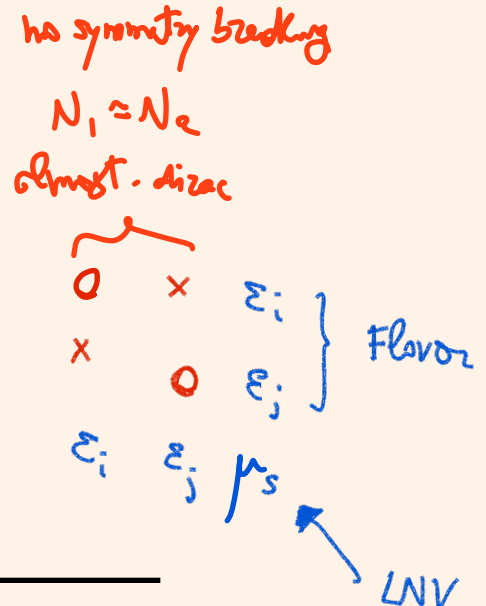 has symmetry breaking
N₁ ≃ N₂
almost. dirac
0 × εᵢ
× 0 εⱼ } Flavor
εᵢ εⱼ μₛ
LNV